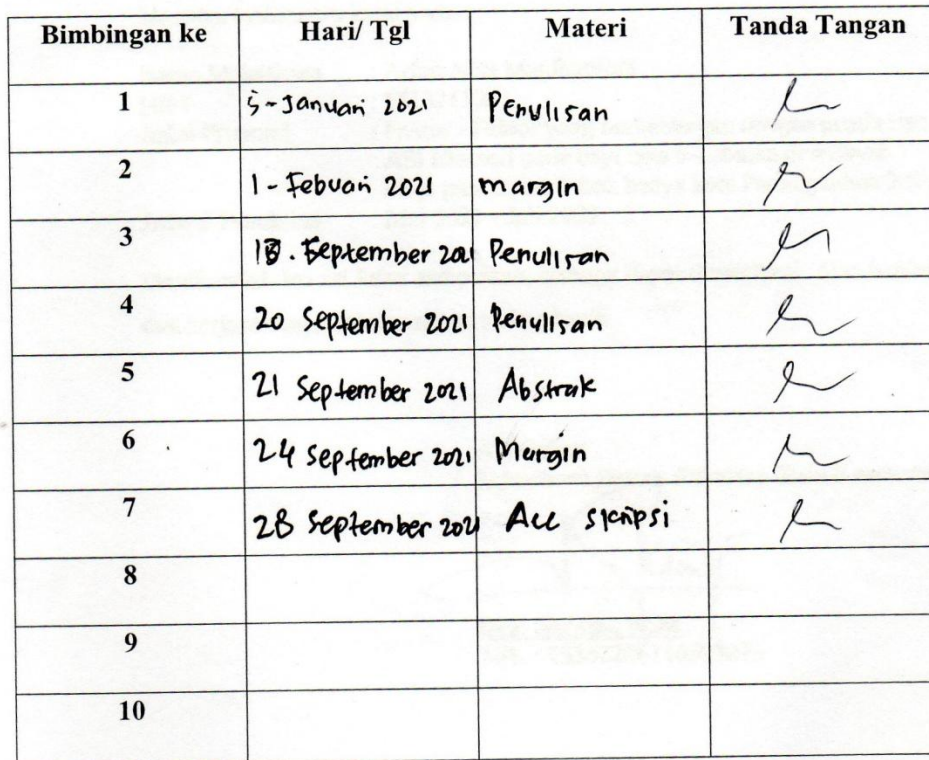 Bimbingan ke Hari/ Tgl Materi Tanda Tangan
1 5-Januari 2021 Penulisan
2 1-Febuari 2021 margin
3 September 2021 Penulisan
4 20 September 2021 Penulisan
5 21 September 2021 Abstrak
6 24 September 2021 Margin
7 28 September 2021 Acc skripsi
8
9
10